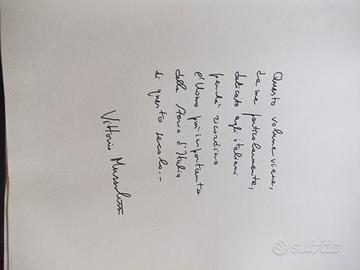 Questo volume viene,
da me particolarmente,
dedicato agli italiani
perché ricordino
l'Uomo più importante
della Storia d'Italia
di questo secolo.-
Vittorio Mussolini
subito